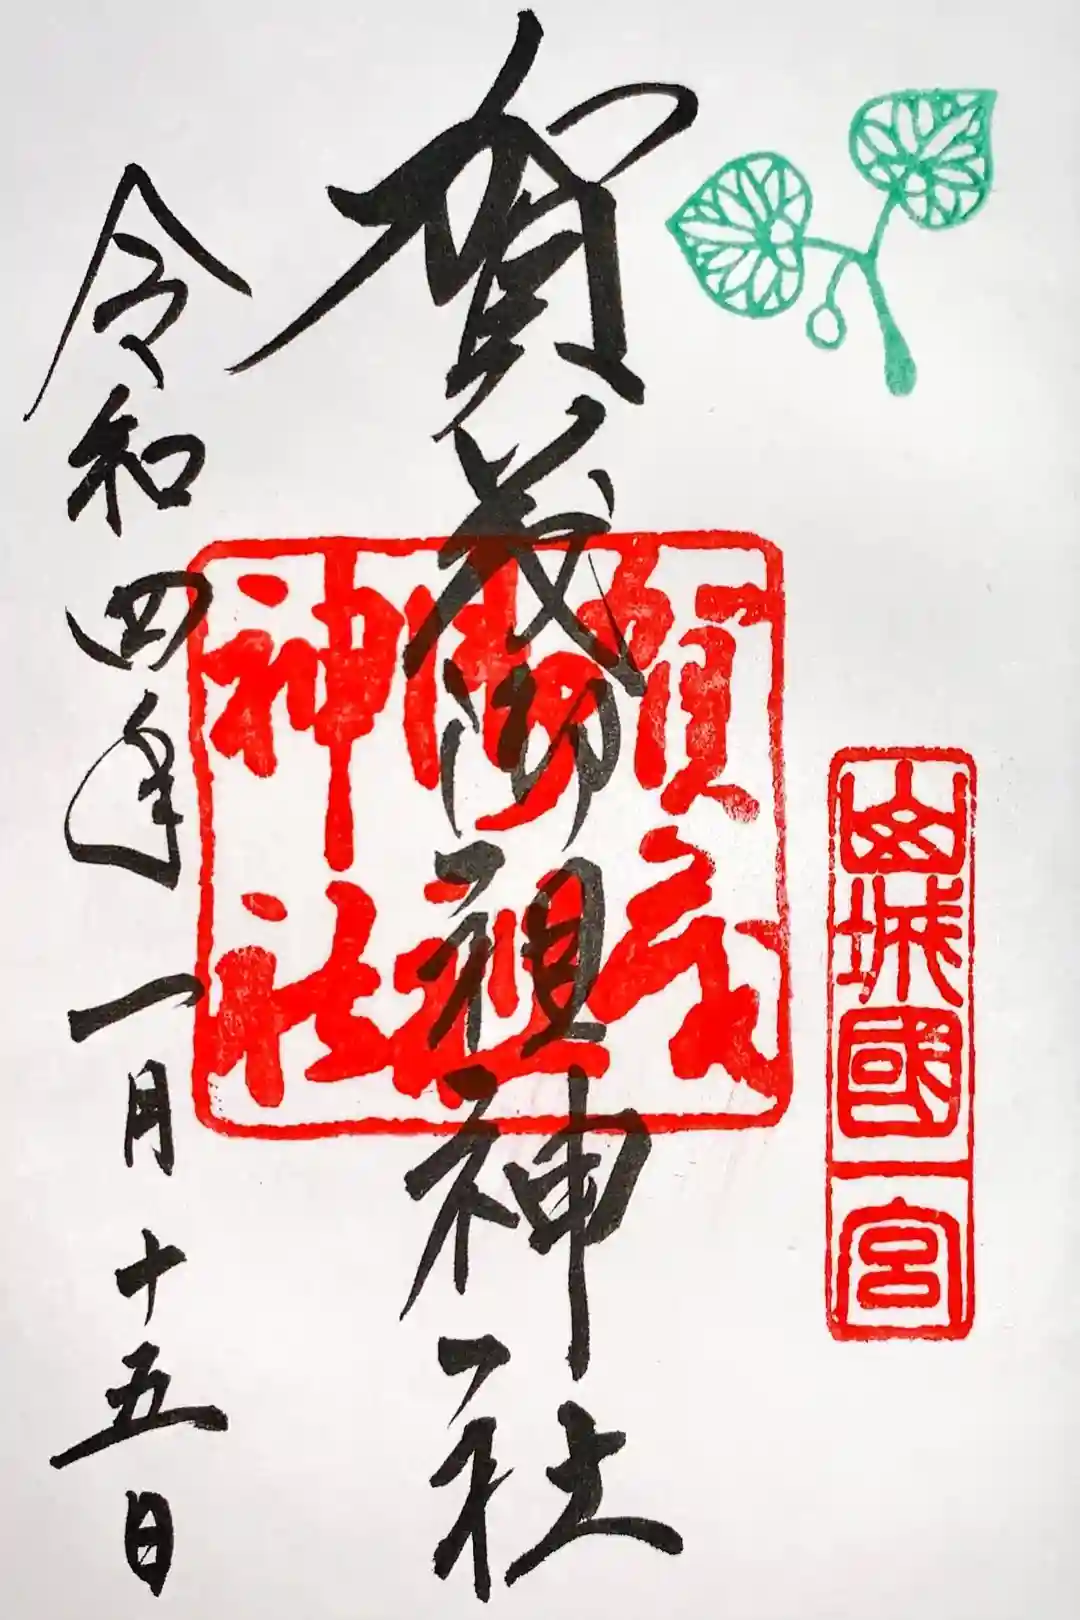 山城國一宮
賀茂御祖神社
賀茂
御祖
神社
令和四年一月十五日